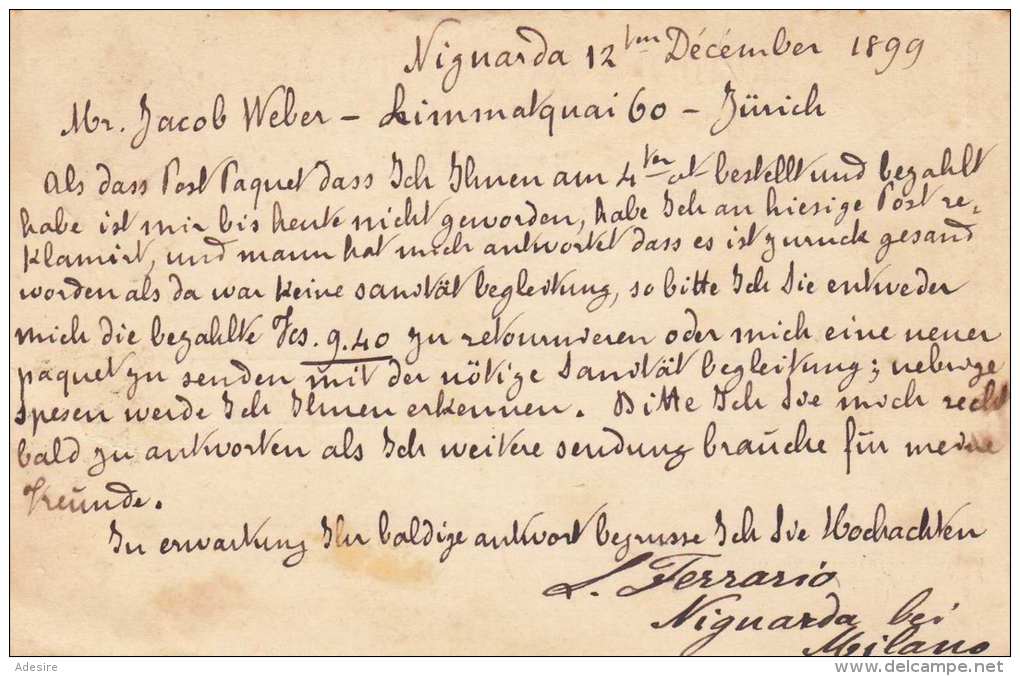 Niguarda 12ten Décémber 1899
Mr. Jacob Weber – Limmatquai 60 – Zürich
Als dass Post Paquet dass Ich Ihnen am 4ten ct bestellt und bezahlt
habe ist mir bis heute nicht geworden, habe Ich an hiesige Post re-
klamirt, und mann hat mich antwortet dass es ist zuruck gesand
worden als da war keine sanität begleitung, so bitte Ich Sie entweder
mich die bezahlte Fcs. 9.40 zu retournieren oder mich eine neuer
paquet zu senden mit der nötige Sanität begleitung; uebrige
spesen werde Ich Ihnen erkennen. Bitte Ich Sie mich recht
bald zu antworten als Ich weitere sendung brauche für meine
Freunde.
In erwartung Ihr baldige antwort begrusse Ich Sie Hochachten
L. Ferrario
Niguarda bei
Milano
Adesire
www.delcampe.net